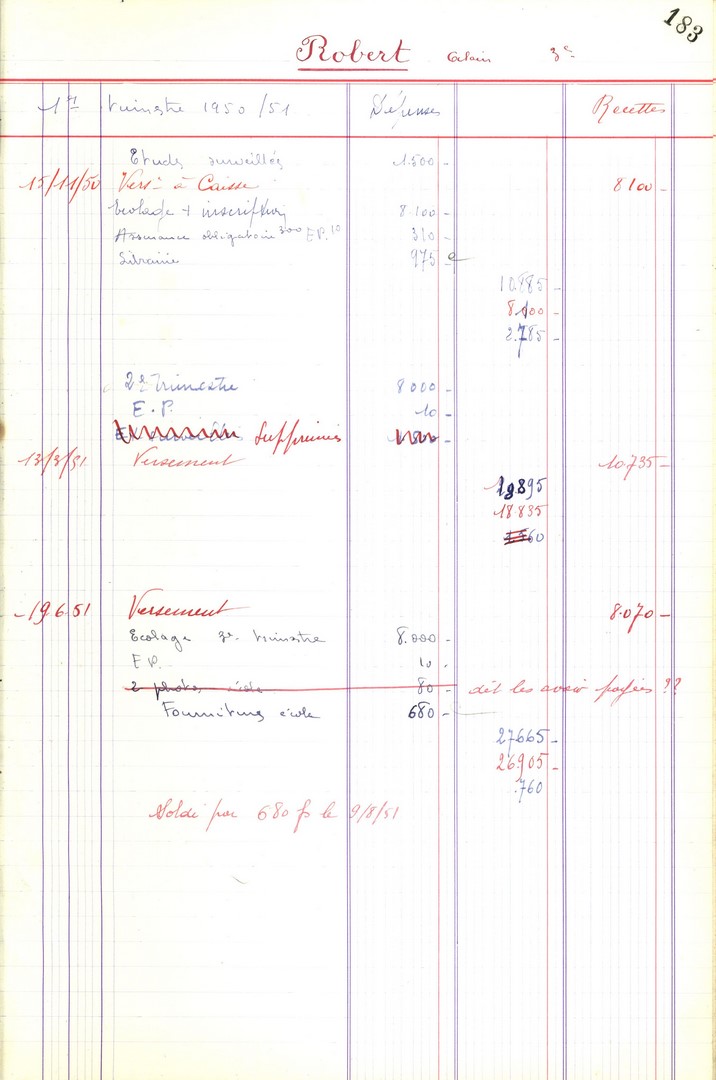 183
Robert Alain 3e
1er trimestre 1950/51 Dépenses Recettes
Etudes surveillées 1.500 -
15/11/50 Verst à Caisse 8100 -
Ecolage + inscription 8.100 -
Assurance obligatoire 300 E.P. 10 310 -
Librairie 975 -
10.885 -
8.100 -
2.785 -
2e trimestre 8000 -
E.P. 10 -
Supprimées
13/3/51 Versement 10.735 -
18.895
18.835
60
19.6.51 Versement 8.070 -
Ecolage 3e trimestre 8.000 -
E.P. 10 -
2 photos école 80 - dit les avoir payées ??
Fournitures école 680 -
27665 -
26.905 -
760
Soldé par 680 fs le 9/8/51